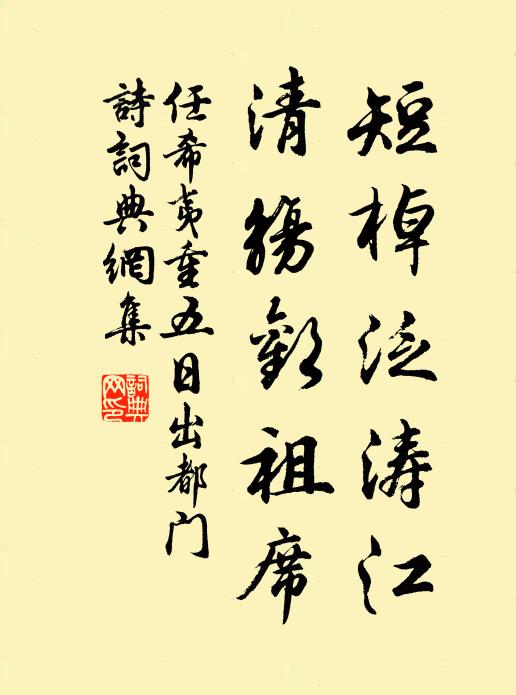 短棹泛涛江
清觴勸祖席
任希夷重五日出都门
詩詞典網集
詞典网印